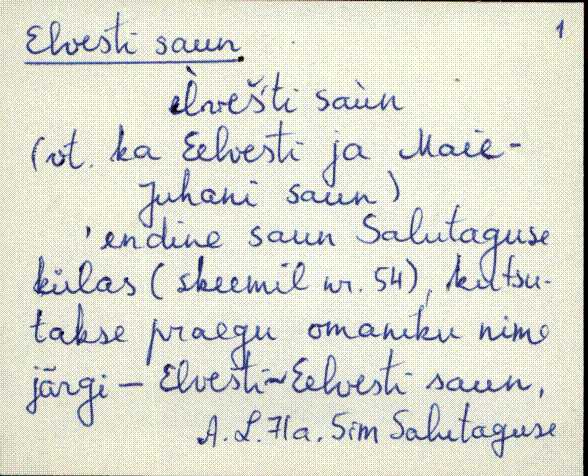 Elvesti saun. 1
èlvešti saùn
(vt. ka Eelvesti ja Maie-
Juhani saun)
'endine saun Salutaguse
külas (skeemil nr. 54), kutsu-
takse praegu omaniku nime
järgi – Elvesti ~ Eelvesti saun,
A. L. 71a. Sim Salutaguse